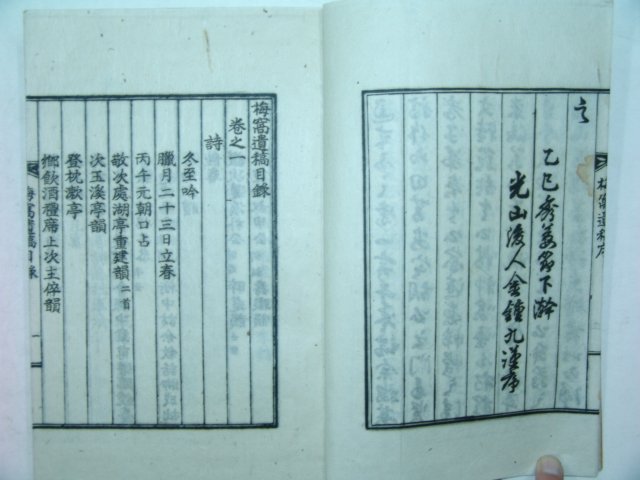 言
乙巳秀葽節下澣
光山後人金鍾九謹序
梅窩遺稿序
梅窩遺稿目錄
卷之一
詩
冬至吟
臘月二十三日立春
丙午元朝口占
敬次處湖亭重建韻二首
次玉溪亭韻
登枕漱亭
鄉飲酒禮席上次主倅韻
梅窩遺稿目錄
一